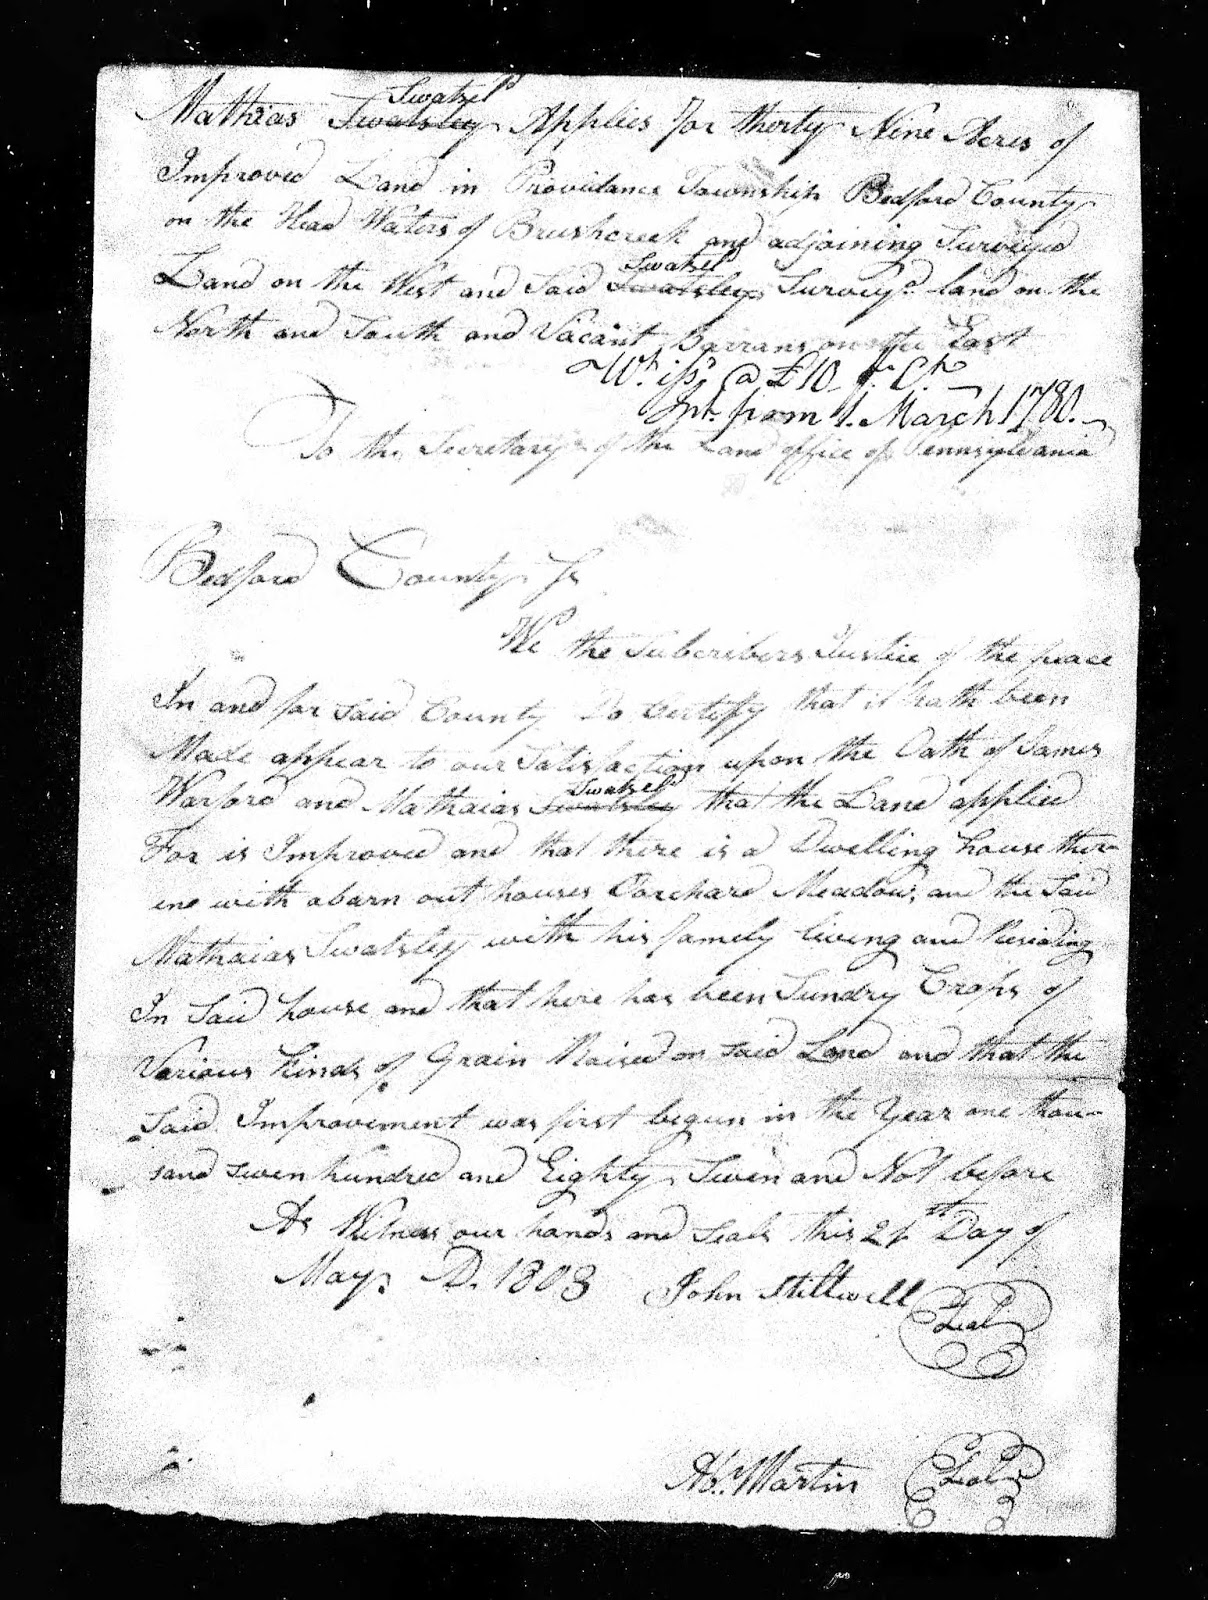 Swatzel
Mathias Swatsley Applies For therty Nine Acres of
Improved Land in Providance Township Bedford County
on the Head Waters of Brushcreek and adjoining Surveyed
Swatzel
Land on the West and Said Swatsley Survey.d land on the
North and South and Vacant Barrans on the East
Wt. iss. @ £10 pr. Ct.
Int. from 1. March 1780.
To the Secretary of the Land office of Pennsylvania
Bedford County Ss
We the Subcribers Justice of the peace
In and for Said County Do Certify that it hath been
Made appear to our Satisfaction upon the Oath of James
Swatzel
Warford and Mathaias Swatsley that the Land applied
For is Improved and that there is a Dwelling house ther
one with abarn out houses Oarchard Meadow; and the Said
Mathaias Swatsley with his famely living and Resiading
In Said house and that here has been Sundry Crops of
Various Kinds of Grain Raised on Said Land and that the
Said Improvement was first begun in the Year one thou-
sand seven hundred and Eighty Seven and Not before
As Witness our hands and Seals this 21st Day of
May D. 1808 John Stillwell Seal
Ab. Martin Seal